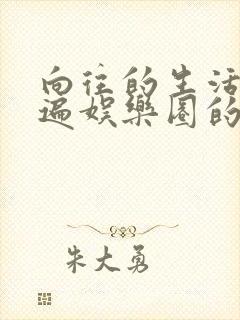 向往的生活
遍娱乐圈的
朱大勇